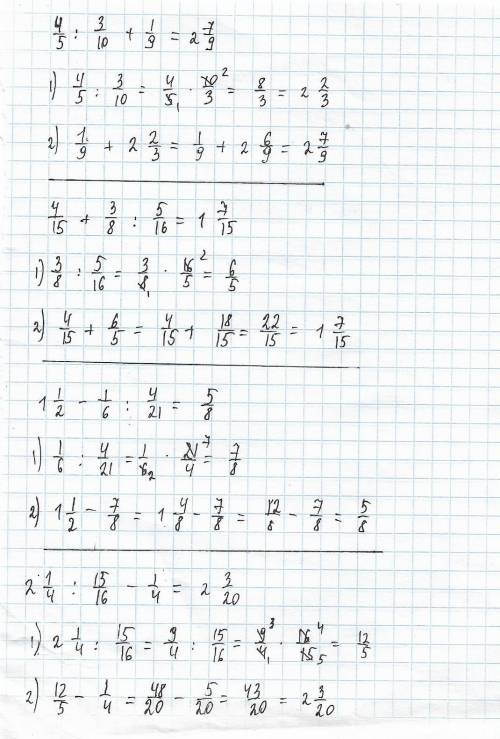 4/5 : 3/10 + 1/9 = 2 7/9
1) 4/5 : 3/10 = 4/5₁ · 10²/3 = 8/3 = 2 2/3
2) 1/9 + 2 2/3 = 1/9 + 2 6/9 = 2 7/9
4/15 + 3/8 : 5/16 = 1 7/15
1) 3/8 : 5/16 = 3/8₁ · 16²/5 = 6/5
2) 4/15 + 6/5 = 4/15 + 18/15 = 22/15 = 1 7/15
1 1/2 - 1/6 : 4/21 = 5/8
1) 1/6 : 4/21 = 1/6₂ · 21⁷/4 = 7/8
2) 1 1/2 - 7/8 = 1 4/8 - 7/8 = 12/8 - 7/8 = 5/8
2 1/4 : 15/16 - 1/4 = 2 3/20
1) 2 1/4 : 15/16 = 9/4 : 15/16 = 9³/4₁ · 16⁴/15₅ = 12/5
2) 12/5 - 1/4 = 48/20 - 5/20 = 43/20 = 2 3/20